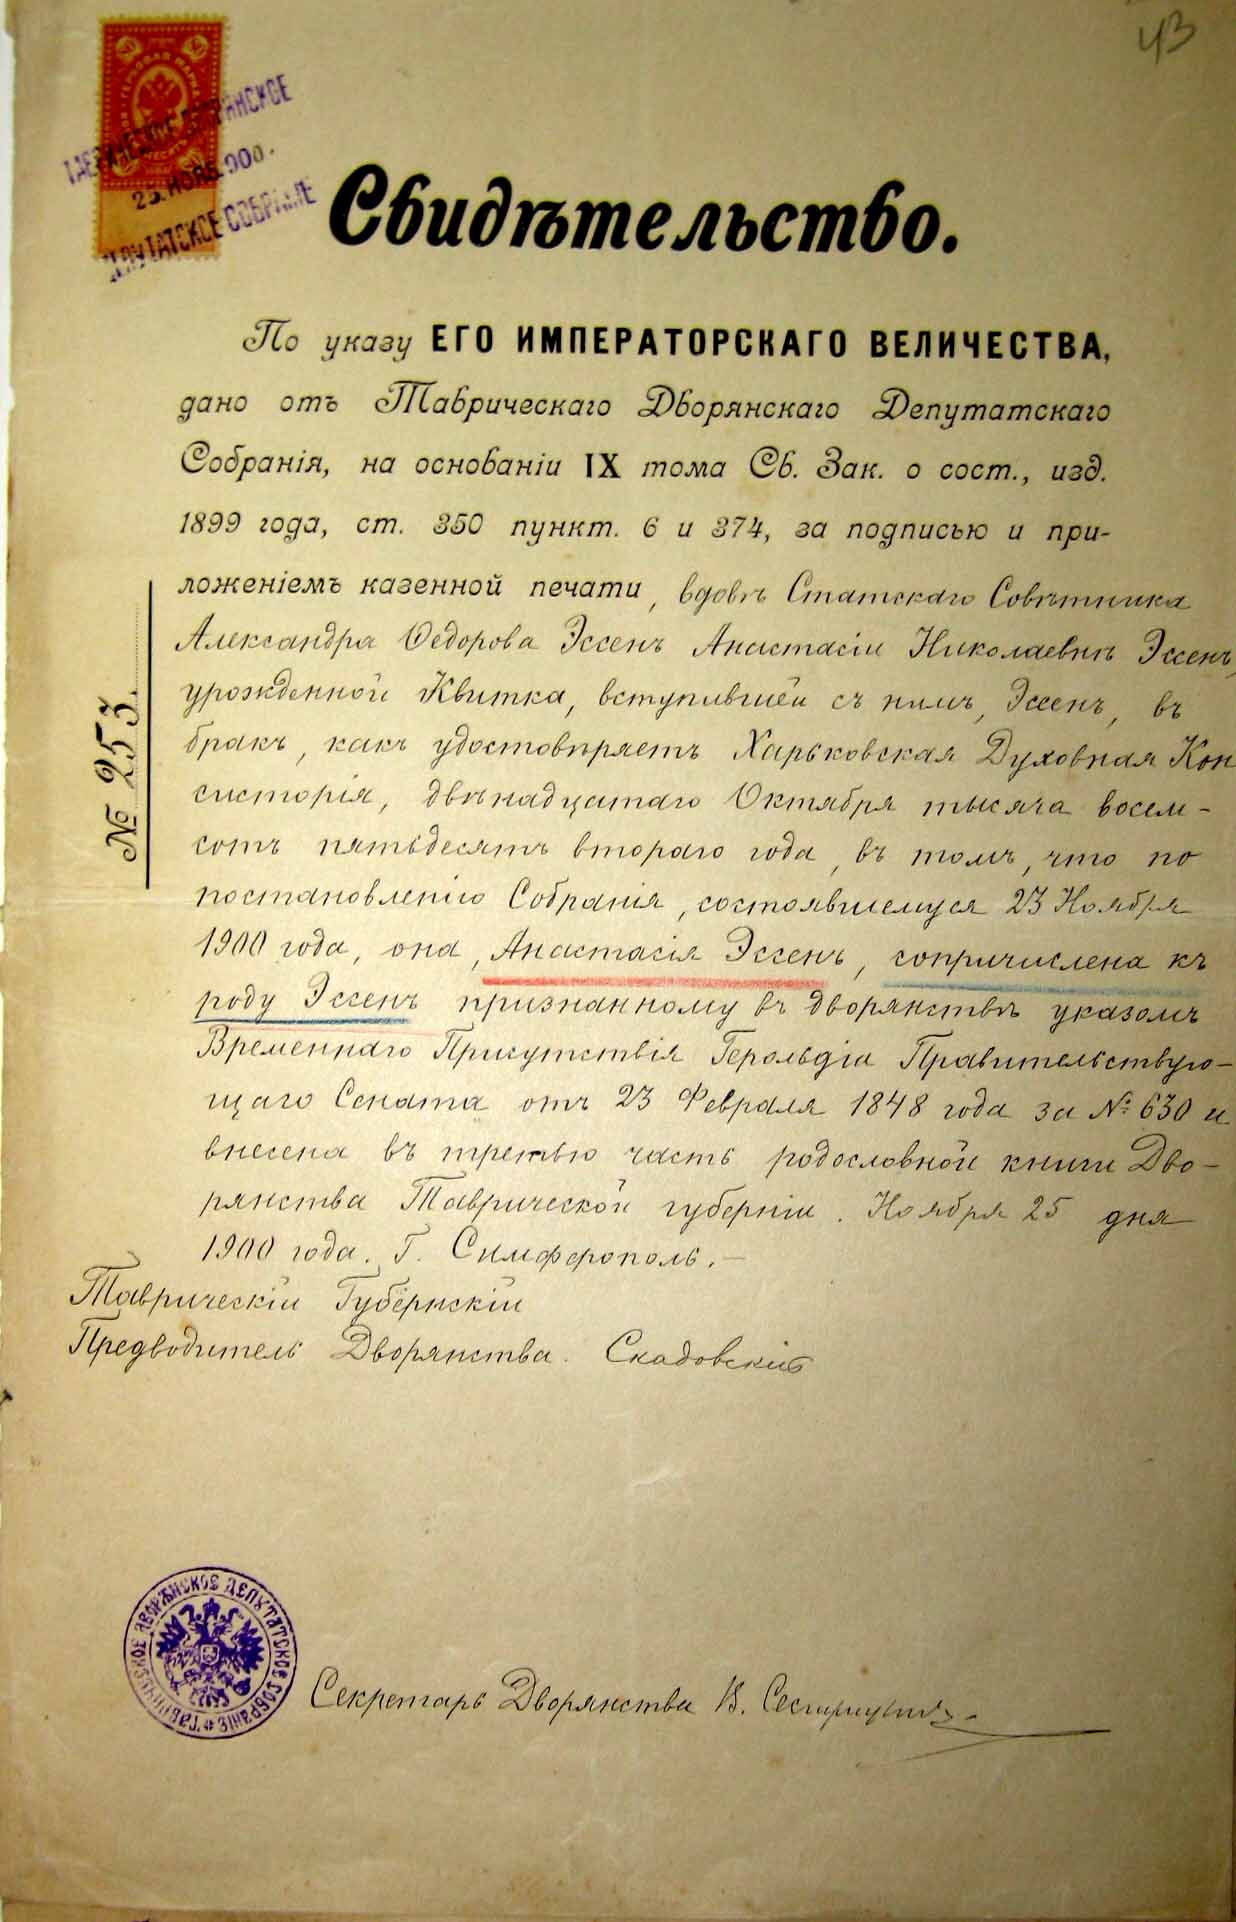 43
ТАВРИЧЕСКОЕ ДВОРЯНСКОЕ
25. НОЯБ. 900.
ДЕПУТАТСКОЕ СОБРАНIЕ
Свидѣтельство.
По указу ЕГО ИМПЕРАТОРСКАГО ВЕЛИЧЕСТВА,
дано отъ Таврическаго Дворянскаго Депутатскаго
Собранія, на основаніи IX тома Св. Зак. о сост., изд.
1899 года, ст. 350 пункт. 6 и 374, за подписью и при-
ложеніемъ казенной печати, вдовѣ Статскаго Совѣтника
Александра Ѳедорова Эссенъ Анастасіи Николаевнѣ Эссенъ,
урожденной Квитка, вступившей съ нимъ, Эссенъ, въ
бракъ, какъ удостовѣряетъ Харьковская Духовная Кон
систорія, двѣнадцатаго Октября тысяча восем-
сотъ пятьдесятъ втораго года, въ томъ, что по
постановленію Собранія, состоявшемуся 23 Ноября
1900 года, она, Анастасія Эссенъ, сопричислена къ
роду Эссенъ признанному въ дворянствѣ указомъ
Временнаго Присутствія Герольдіи Правительствую-
щаго Сената отъ 23 Февраля 1848 года за №: 630 и
внесена въ третью часть родословной книги Дво-
рянства Таврической губерніи. Ноября 25 дня
1900 года. Г. Симферополь.-
№ 253.
Таврическій Губернскій
Предводитель Дворянства. Скадовскій
ТАВРИЧЕСКОЕ ДВОРЯНСКОЕ ДЕПУТАТСКОЕ СОБРАНІЕ
Секретарь Дворянства В.